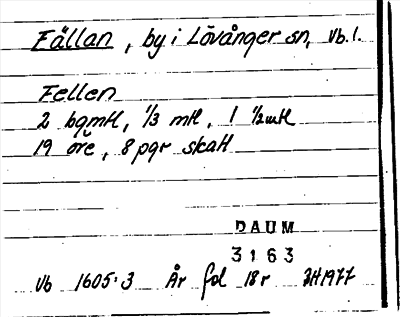 Fällan, by i Lövånger sn, Vb. l.
Fellen
2 bgmtl, 1/3 mtl, 1 1/2 mtl
19 öre, 8 pgr skatt
DAUM
3163
Vb 1605:3 År fol 18r JH1977